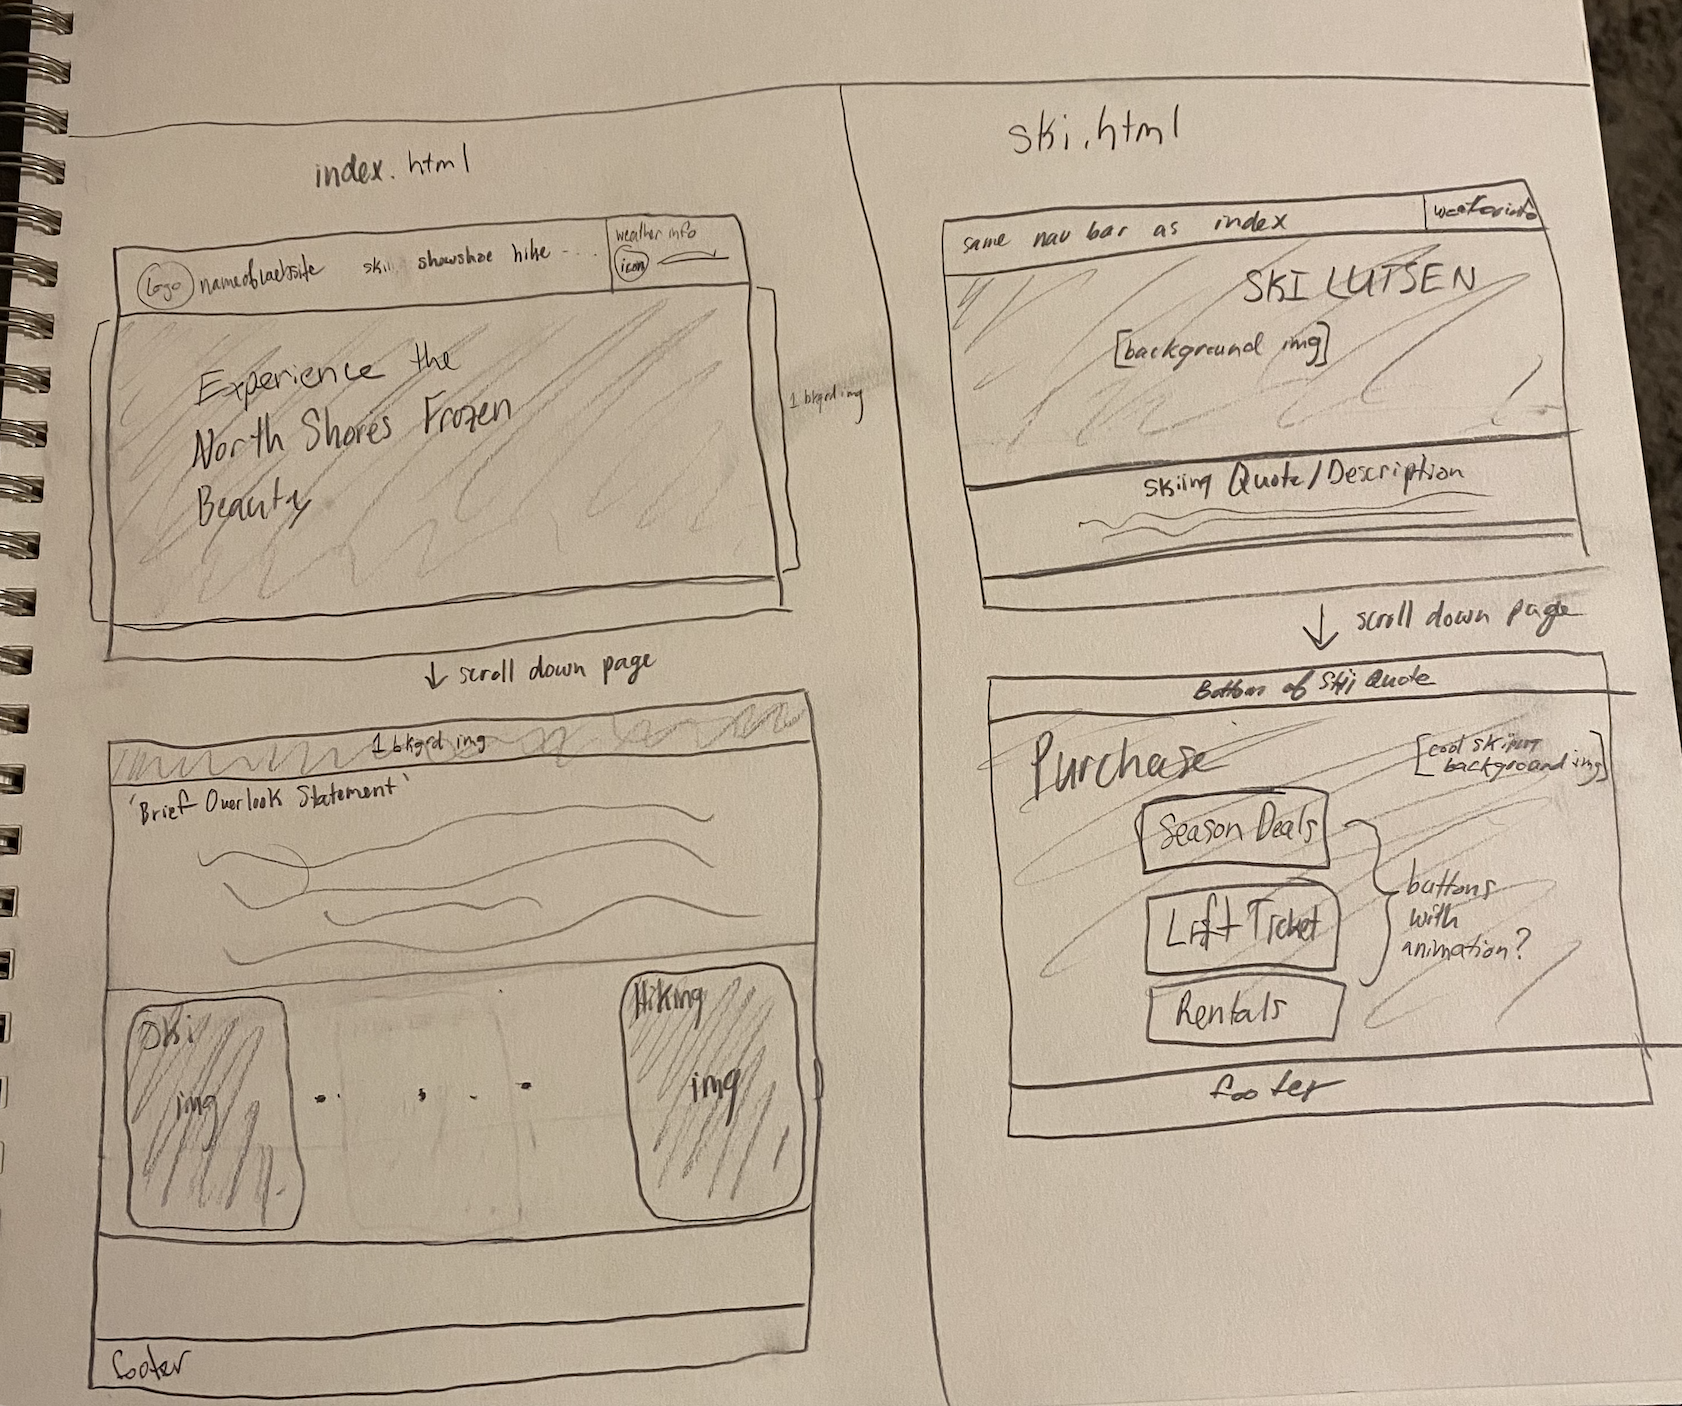 index.html
Logo nameofwebsite ski snowshoe hike ....
weather info
icon
Experience the
North Shores Frozen
Beauty
1 bkgrd img
↓ scroll down page
1 bkgrd img
'Brief Overlook Statement'
Ski
img
Hiking
img
footer
ski.html
same nav bar as index
weather info
SKI LUTSEN
[background img]
Skiing Quote/Description
↓ scroll down page
Bottom of Ski Quote
Purchase
[cool skiing
background img]
Season Deals
Lift Ticket
Rentals
buttons
with
animation?
footer